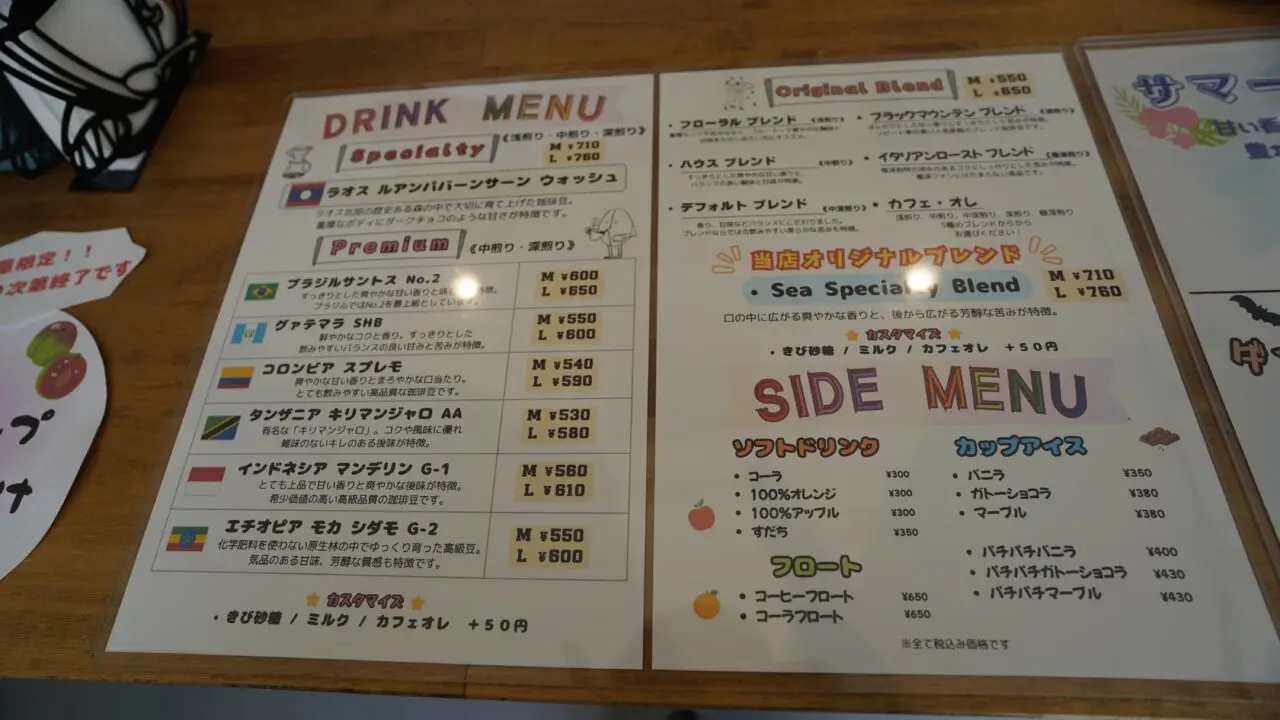 DRINK MENU
Specialty
《浅煎り・中煎り・深煎り》
M ¥710
L ¥760
ラオス ルアンパバーンサーン ウォッシュ
ラオス北部の歴史ある森の中で大切に育て上げた珈琲豆。
重厚なボディにダークチョコのような甘さが特徴です。
Premium 《中煎り・深煎り》
ブラジルサントス No.2
すっきりとした爽やかな甘い香りと
特徴。
ブラジルではNo.2を最上級としています。
M ¥600
L ¥650
グァテマラ SHB
鮮やかなコクと香り。すっきりとした
飲みやすいバランスの良い甘みと苦みが特徴。
M ¥550
L ¥600
コロンビア スプレモ
爽やかな甘い香りとまろやかな口当たり。
とても飲みやすい高品質な珈琲豆です。
M ¥540
L ¥590
タンザニア キリマンジャロ AA
有名な「キリマンジャロ」。コクや風味に優れ
雑味のないキレのある後味が特徴。
M ¥530
L ¥580
インドネシア マンデリン G-1
とても上品で甘い香りと爽やかな後味が特徴。
希少価値の高い高級品質の珈琲豆です。
M ¥560
L ¥610
エチオピア モカ シダモ G-2
化学肥料を使わない原生林の中でゆっくり育った高級豆。
気品のある甘味、芳醇な質感も特徴です。
M ¥550
L ¥600
カスタマイズ
・きび砂糖 / ミルク / カフェオレ +50円
Original Blend
M ¥550
L ¥650
・フローラル ブレンド 《浅煎り》
・ブラックマウンテン ブレンド
・ハウス ブレンド 《中煎り》
すっきりとした爽やかな香りと、
バランスの良い酸味と甘味が特徴。
・イタリアンロースト ブレンド 《極深煎り》
・デフォルト ブレンド 《中深煎り》
香り、甘味などバランスにこだわりました。
ブレンドならではの飲みやすい柔らかな苦みも特徴。
・カフェ・オレ
浅煎り、中煎り、中深煎り、深煎り、極深煎り
5種のブレンドからから
お選びください!
当店オリジナルブレンド
・Sea Specialty Blend
M ¥710
L ¥760
口の中に広がる爽やかな香りと、後から広がる芳醇な苦みが特徴。
カスタマイズ
・きび砂糖 / ミルク / カフェオレ +50円
SIDE MENU
ソフトドリンク
・コーラ ¥300
・100%オレンジ ¥300
・100%アップル ¥300
・すだち ¥350
フロート
・コーヒーフロート ¥650
・コーラフロート ¥650
カップアイス
・バニラ ¥350
・ガトーショコラ ¥380
・マーブル ¥380
・パチパチバニラ ¥400
・パチパチガトーショコラ ¥430
・パチパチマーブル ¥430
※全て税込み価格です
限定!!
次第終了です
サマー
甘い香